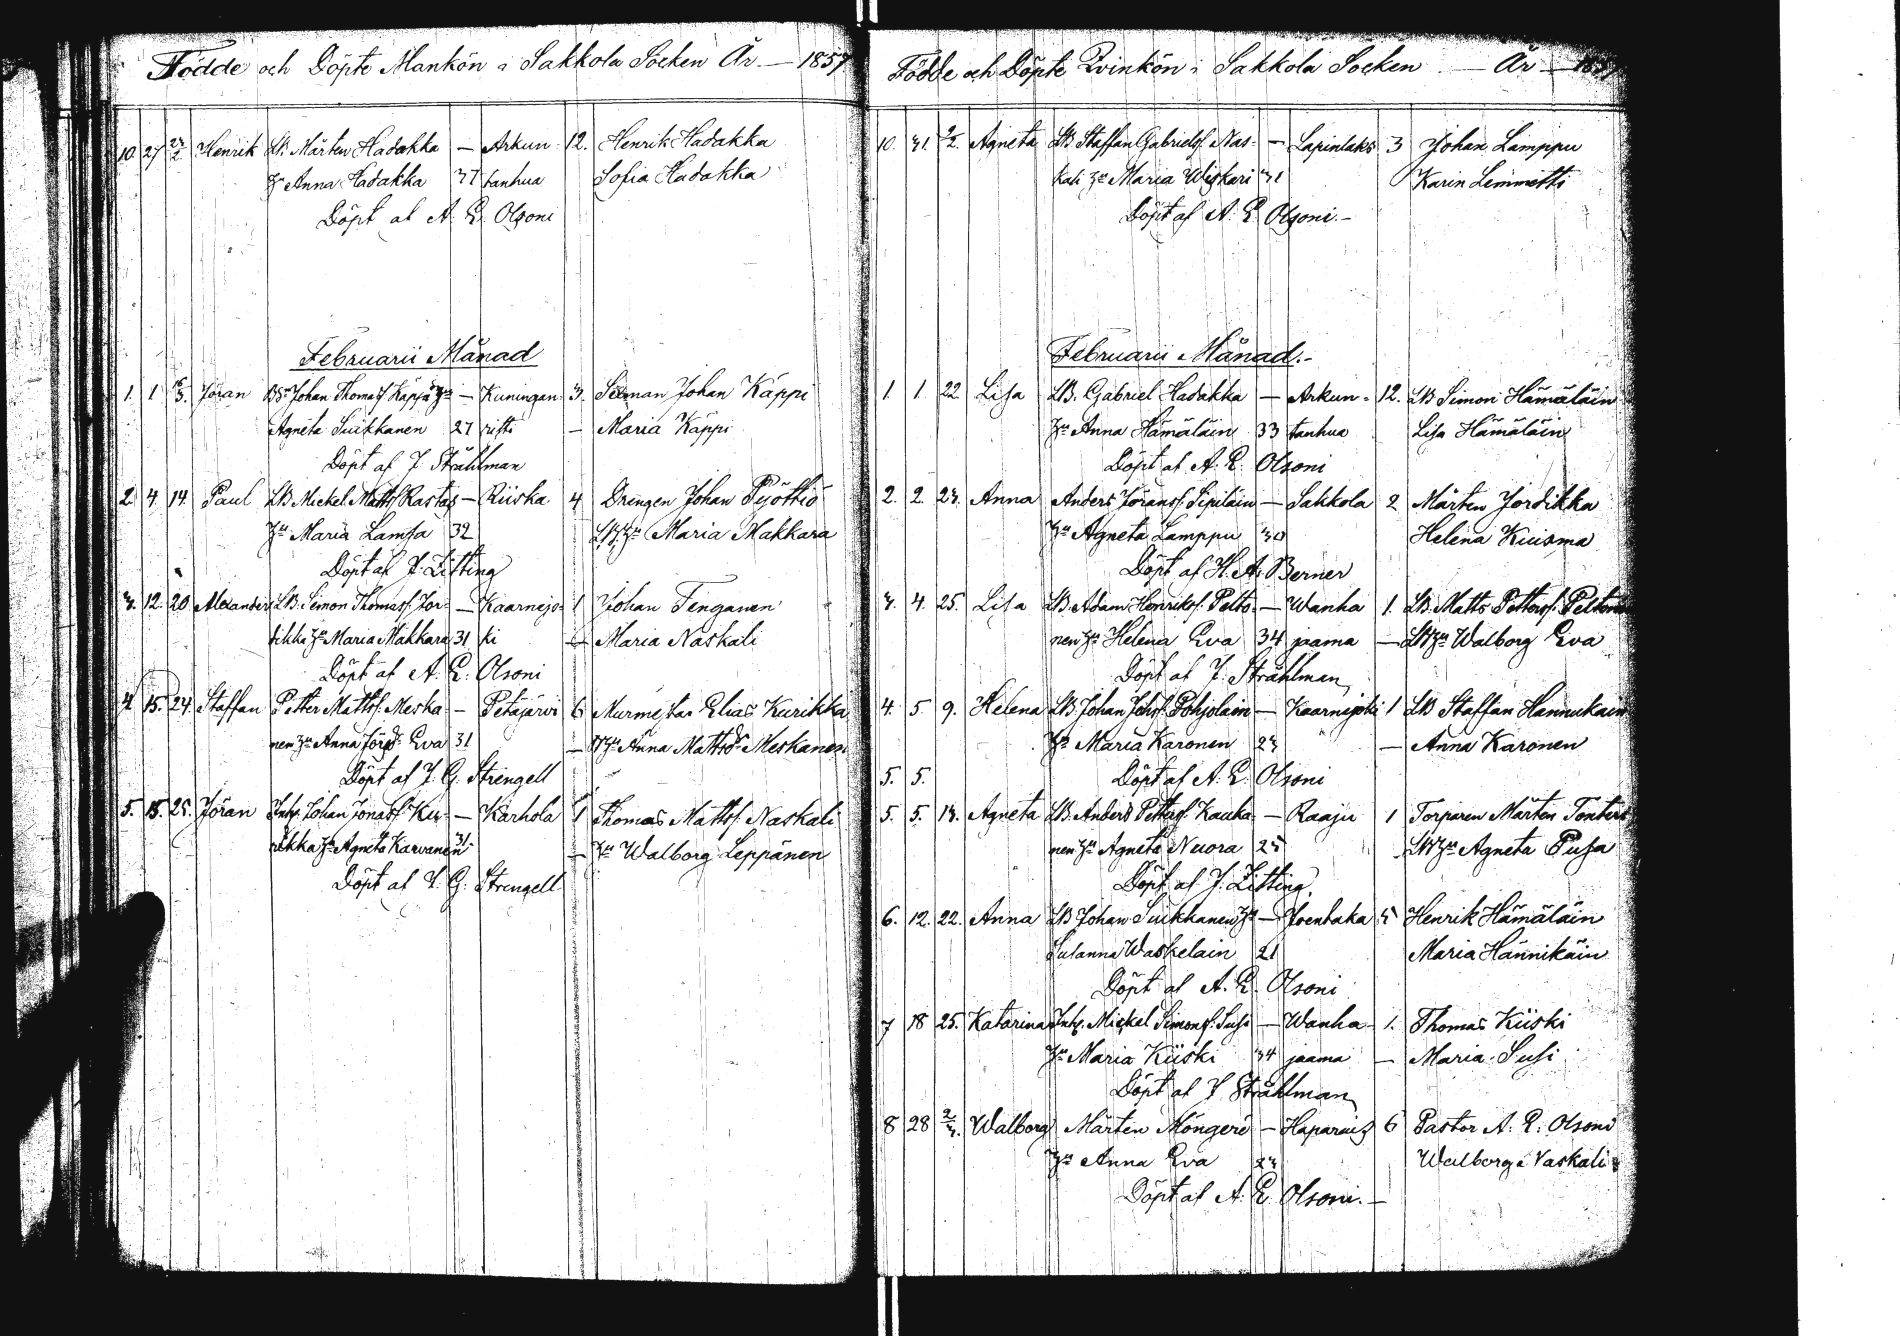 Födde och Döpte Mankön i Sakkola Socken År — 1857
10. 27 23/2 Henrik LB. Mårten Hadakka — Arkun 12. Henrik Hadakka
Hu Anna Hadakka 37 tanhua Sofia Hadakka
Döpt af A. E. Olsoni
Februarii Månad
1. 1 Jöran Johan Thomasf Käppi Hu — Kuningan 3. Johan Käppi
Agneta Suikkanen 27 ristti — Maria Käppi
Döpt af J Stråhlman
2. 4. 14. Paul LB Mickel Mattsf Rastas — Riiska 4 Drängen Johan Pyöttiö
Hu Maria Lamsa 32 LB Hu Maria Makkara
Döpt af J. Zitting
3. 12. 20. Alexander LB. Simon Thomasf. Jor- — Kaarnejo- 1 Johan Tenganen
dikka Hu Maria Makkara 31 ki — Maria Naskali
Döpt af A. E. Olsoni
4. 15. 24. Staffan Petter Mattsf. Meska- — Petäjärvi 6 Elias Kurikka
nen Hu Anna Eva 31 — Hu Anna Mattsdr Meskanen
Döpt af J. G. Strengell
5. 15. 25. Jöran Inh. Johan Jonasf Ku- — Karhola 1 Thomas Mattsf. Naskali
rikka Hu Agneta Karvanen 31 — Hu Walborg Leppänen
Döpt af J. G. Strengell
Födde och Döpte Qvinkön i Sakkola Socken — År — 1857
10. 31. 2/2 Agneta LB Staffan Gabrielsf. Nas- — Lapinlaks 3 Johan Lamppu
kali Hu Maria Wiskari 31 Karin Lemmetti
Döpt af A. E. Olsoni. —
Februarii Månad. —
1 1 22 Lisa LB. Gabriel Hadakka — Arkun- 12. LB Simon Hämäläin
Hu Anna Hämäläin 33 tanhua Lisa Hämäläin
Döpt af A. E. Olsoni
2. 2 23. Anna Anders Jöransf. Sipiläin — Sakkola 2 Mårten Jordikka
Hu Agneta Lamppu 30 Helena Kuisma
Döpt af H. A. Berner
3. 4. 25. Lisa LB Adam Henriksf. Pelto- — Wanha 1. LB. Matts Pettersf. Peltonen
nen Hu Helena Eva 34 jaama — LB Hu Walborg Eva
Döpt af J. Stråhlman
4. 5 9. Helena LB. Johan Johsf. Pohjolain — Kaarnejoki 1 LB Staffan Hannukain
Hu Maria Karonen 23 — Anna Karonen
5. 5. Döpt af A. E. Olsoni
5. 5. 13. Agneta LB. Anders Pettersf. Kauha- — Raaju 1 Torparen Mårten Tontere
nen Hu Agneta Nuora 25 LB Hu Agneta Pusa
Döpt af J. Zitting
6. 12. 22. Anna LB Johan Suikkanen Hu — Joenhaka 5 Henrik Hämäläin
Susanna Waskelain 21 Maria Hännikäin
Döpt af A. E. Olsoni
7 18 25. Katarina Inh. Mickel Simonsf. Susi — Wanha- 1. Thomas Kiiski
Hu Maria Kiiski 34 jaama — Maria Susi
Döpt af J Stråhlman
8 28 2/3. Walborg Mårten Möngere — Haparais 6 Pastor A. E. Olsoni
Hu Anna Eva 23 Walborg Naskali
Döpt af A. E. Olsoni. —